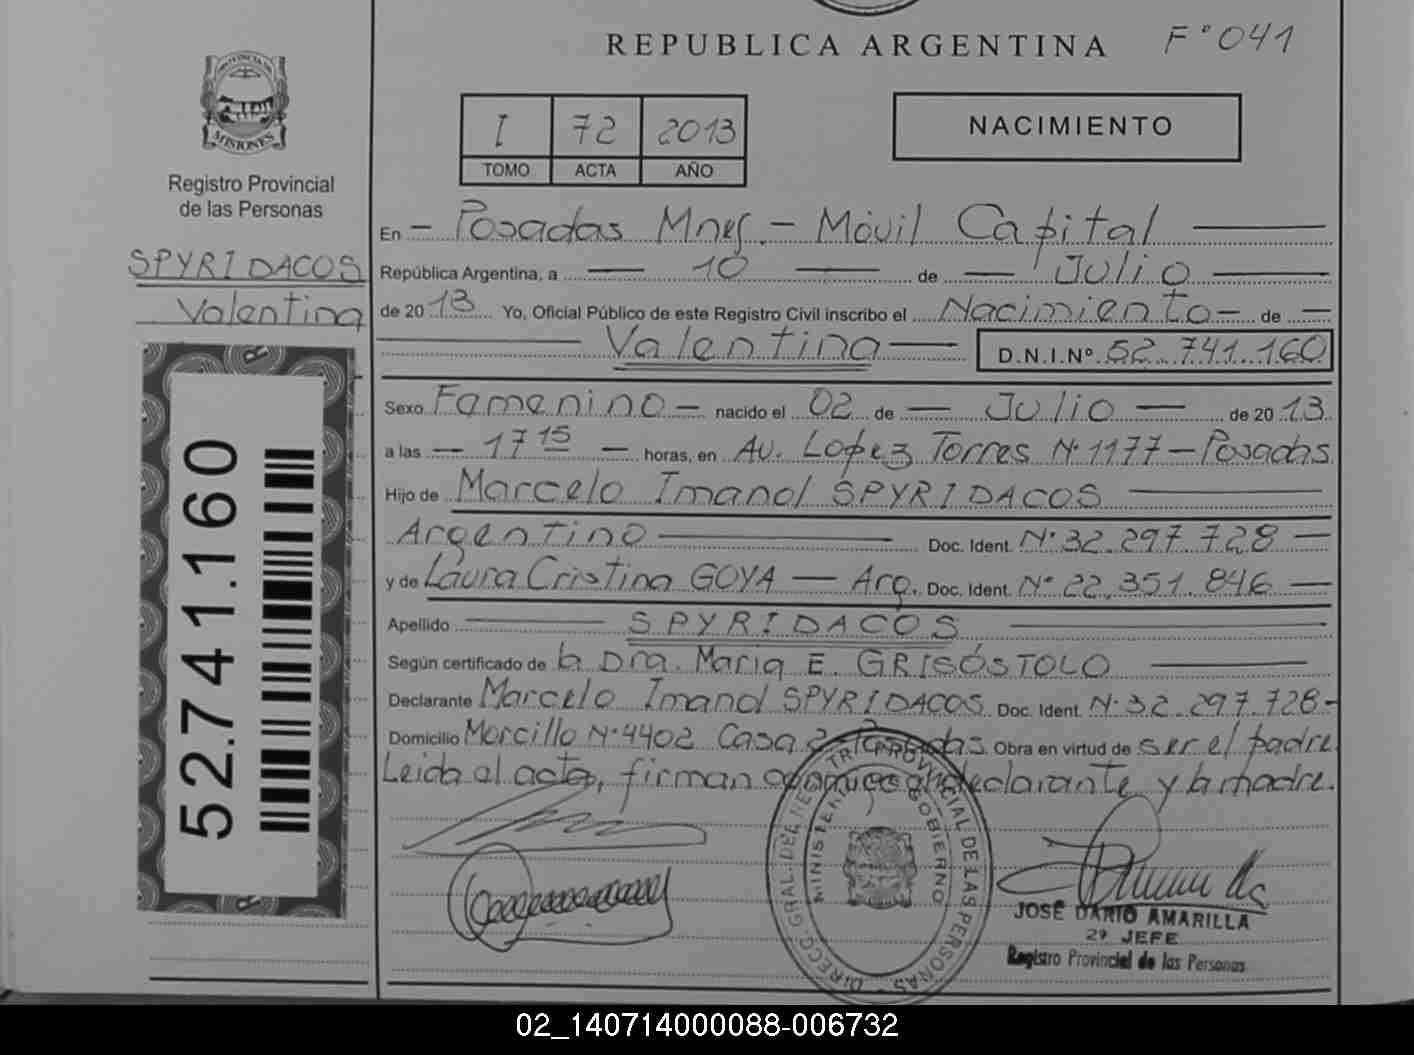 REPUBLICA ARGENTINA F°041
PROVINCIA DE
MISIONES
Registro Provincial
de las Personas
SPYRIDACOS
Valentina
52.741.160
I 72 2013
TOMO ACTA AÑO
NACIMIENTO
En - Posadas Mnes. - Móvil Capital
República Argentina, a 10 de Julio
de 2013 Yo, Oficial Público de este Registro Civil inscribo el Nacimiento - de -
Valentina D.N.I.Nº 52.741.160
Sexo Femenino - nacido el 02 de - Julio - de 2013
a las - 17 15 - horas, en Av. Lopez Torres N° 1177 - Posadas
Hijo de Marcelo Imanol SPYRIDACOS
Argentino Doc. Ident. N° 32.297.728 -
y de Laura Cristina GOYA - Arg. Doc. Ident. N° 22.351.846 -
Apellido SPYRIDACOS
Según certificado de la Dra. Maria E. GRISÓSTOLO
Declarante Marcelo Imanol SPYRIDACOS Doc. Ident. N° 32.297.728-
Domicilio Morcillo N° 4402 Casa 2 Posadas Obra en virtud de ser el padre.
Leida el acta, firman declarante y la madre.
DIRECC. GRAL. DEL REGISTRO PROVINCIAL DE LAS PERSONAS
MINISTERIO GOBIERNO
JOSÉ DARIO AMARILLA
2º JEFE
Registro Provincial de las Personas
02_140714000088-006732